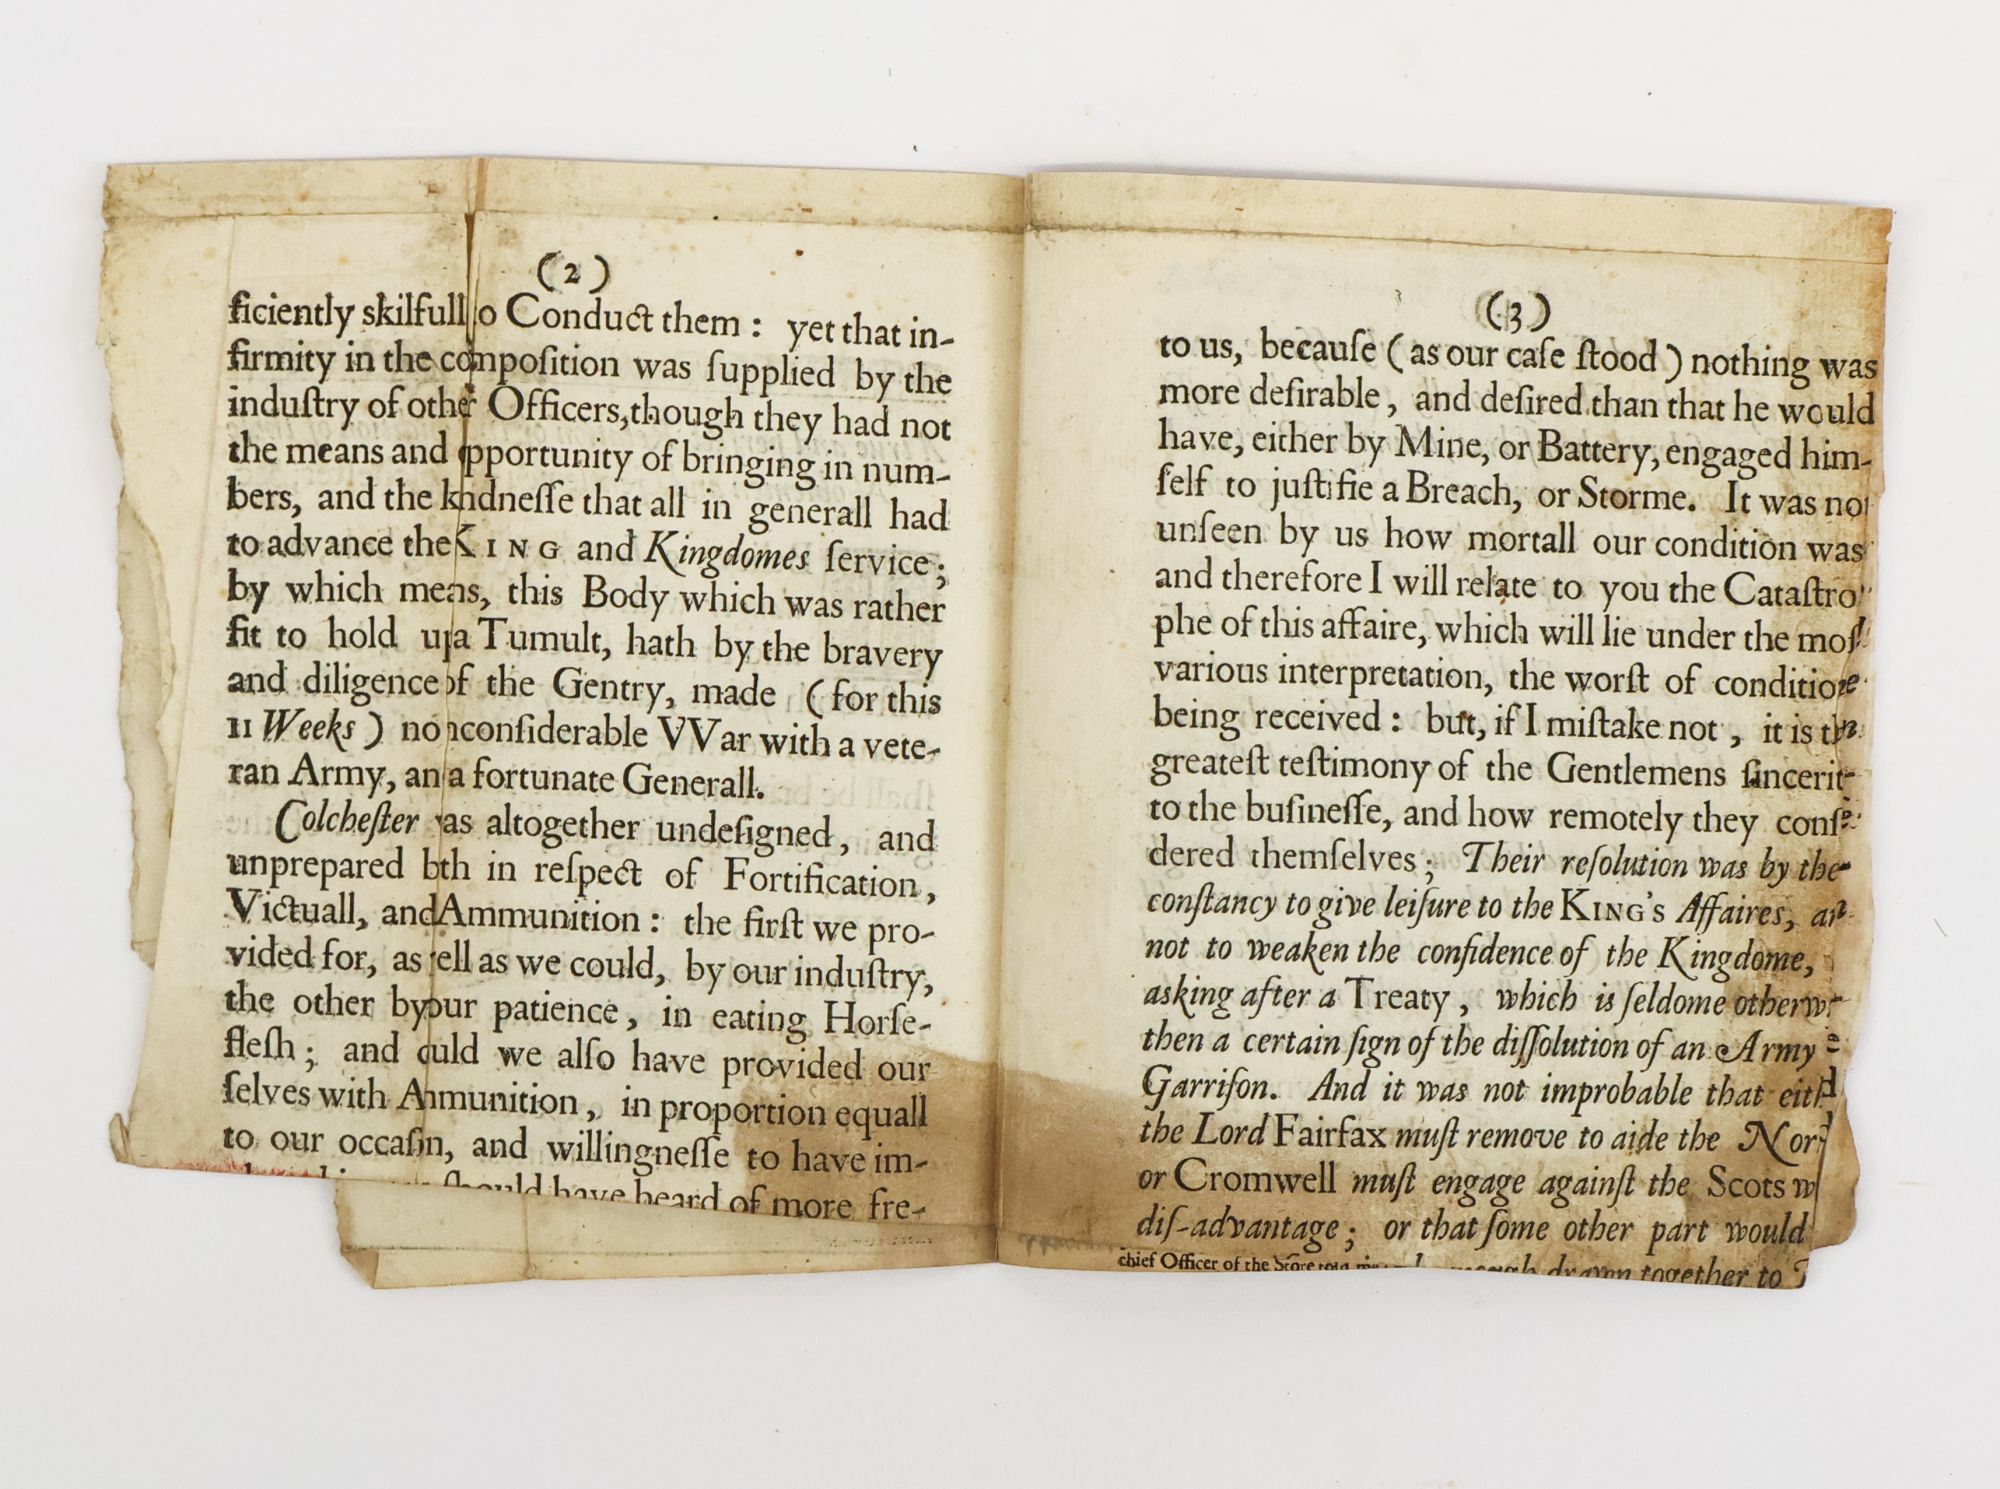 (2)
ficiently skilfull o Conduct them : yet that in-
firmity in the composition was supplied by the
induſtry of other Officers, though they had not
the means and opportunity of bringing in num-
bers, and the kndneſſe that all in generall had
to advance the KING and Kingdomes ſervice ;
by which meas, this Body which was rather
fit to hold up a Tumult, hath by the bravery
and diligence of the Gentry, made ( for this
11 Weeks ) no inconſiderable VVar with a vete-
ran Army, an a fortunate Generall.
Colcheſter was altogether undeſigned, and
unprepared bth in reſpect of Fortification,
Victuall, and Ammunition : the firſt we pro-
vided for, as well as we could, by our induſtry,
the other by our patience, in eating Horſe-
fleſh ; and could we alſo have provided our
ſelves with Ammunition, in proportion equall
to our occaſin, and willingneſſe to have im-
ſhould have heard of more fre-
(3)
to us, becauſe ( as our caſe ſtood ) nothing was
more deſirable, and deſired than that he would
have, either by Mine, or Battery, engaged him-
ſelf to juſtifie a Breach, or Storme. It was not
unſeen by us how mortall our condition was
and therefore I will relate to you the Cataſtro
phe of this affaire, which will lie under the moſt
various interpretation, the worſt of condition
being received : but, if I miſtake not, it is
greateſt teſtimony of the Gentlemens ſincerit
to the buſineſſe, and how remotely they conſ
dered themſelves ; Their reſolution was by the
conſtancy to give leiſure to the KING'S Affaires, an
not to weaken the confidence of the Kingdome,
asking after a Treaty, which is ſeldome otherw
then a certain ſign of the diſſolution of an Army
Garriſon. And it was not improbable that eith
the Lord Fairfax muſt remove to aide the Nor
or Cromwell muſt engage againſt the Scots w
diſ-advantage ; or that ſome other part would
chief Officer of the Store told me drawn together to